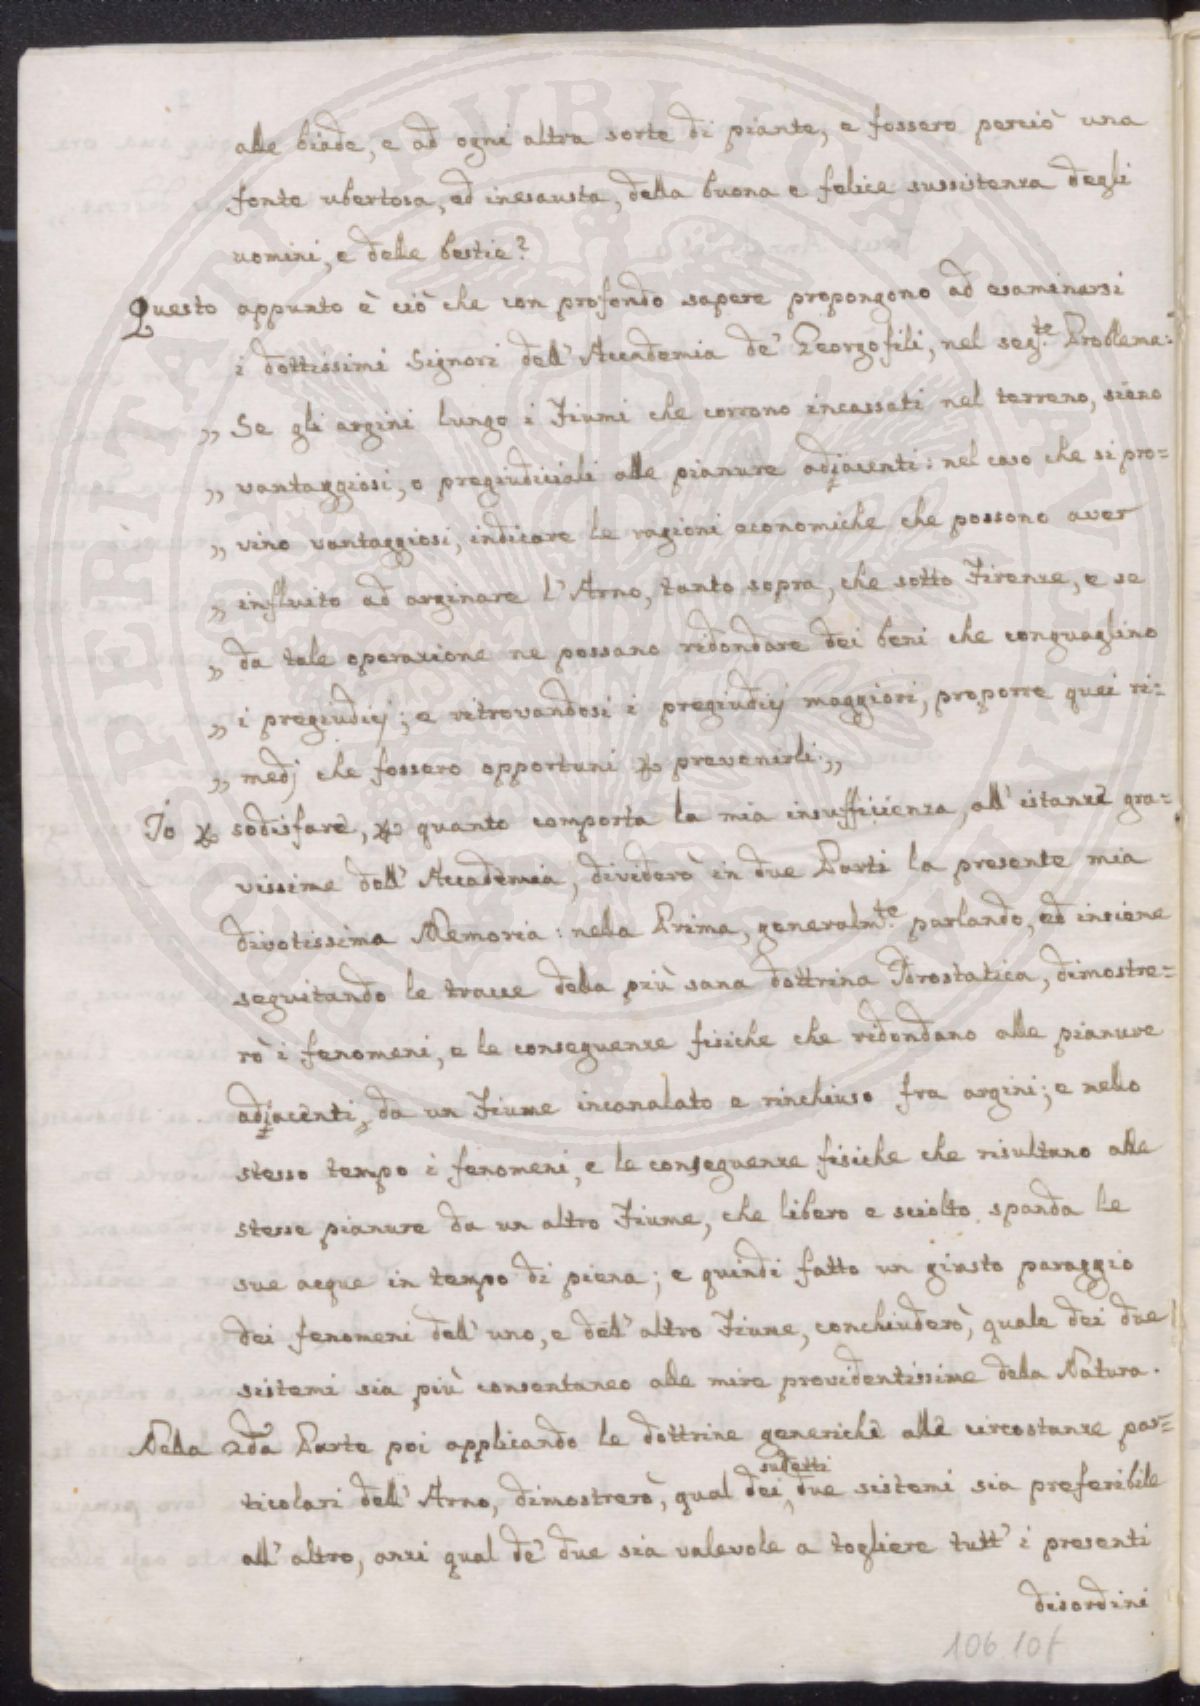 alle biade, e ad ogni altra sorte di piante, e fossero perciò una
fonte ubertosa, ed inesausta, della buona e felice sussistenza degli
uomini, e delle bestie?
Questo appunto è ciò che con profondo sapere propongono ad esaminarsi
i dottissimi Signori dell' Accademia de' Georgofili, nel seg.te Problema:
„ Se gli argini lungo i Fiumi che corrono incassati nel terreno, sieno
„ vantaggiosi, o pregiudiciali alle pianure adjacenti: nel caso che si pro=
„ vino vantaggiosi, indicare le ragioni economiche che possono aver
„ influito ad arginare l' Arno, tanto sopra, che sotto Firenze, e se
„ da tale operazione ne possano ridondare dei beni che conguaglino
„ i pregiudicj; e ritrovandosi i pregiudicj maggiori, proporre quei ri=
„ medj che fossero opportuni p prevenirli. „
Io p sodisfare, p quanto comporta la mia insufficienza, all' istanze gra=
vissime dell' Accademia, dividerò in due Parti la presente mia
divotissima Memoria: nella Prima, generalm.te parlando, ed insieme
seguitando le tracce della più sana dottrina Idrostatica, dimostre=
rò i fenomeni, e le conseguenze fisiche che ridondano alle pianure
adjacenti, da un Fiume incanalato e rinchiuso fra argini; e nello
stesso tempo i fenomeni, e le conseguenze fisiche che risultano alle
stesse pianure da un altro Fiume, che libero e sciolto spanda le
sue acque in tempo di piena; e quindi fatto un giusto paraggio
dei fenomeni dell' uno, e dell' altro Fiume, conchiuderò, quale dei due
sistemi sia più consentaneo alle mire providentissime della Natura.
Nella 2da Parte poi applicando le dottrine generiche alle circostanze par=
sudetti
ticolari dell' Arno, dimostrerò, qual dei due sistemi sia preferibile
all' altro, anzi qual de' due sia valevole a togliere tutt' i presenti
disordini
106 107
PROSPERITATI PUBLICAE